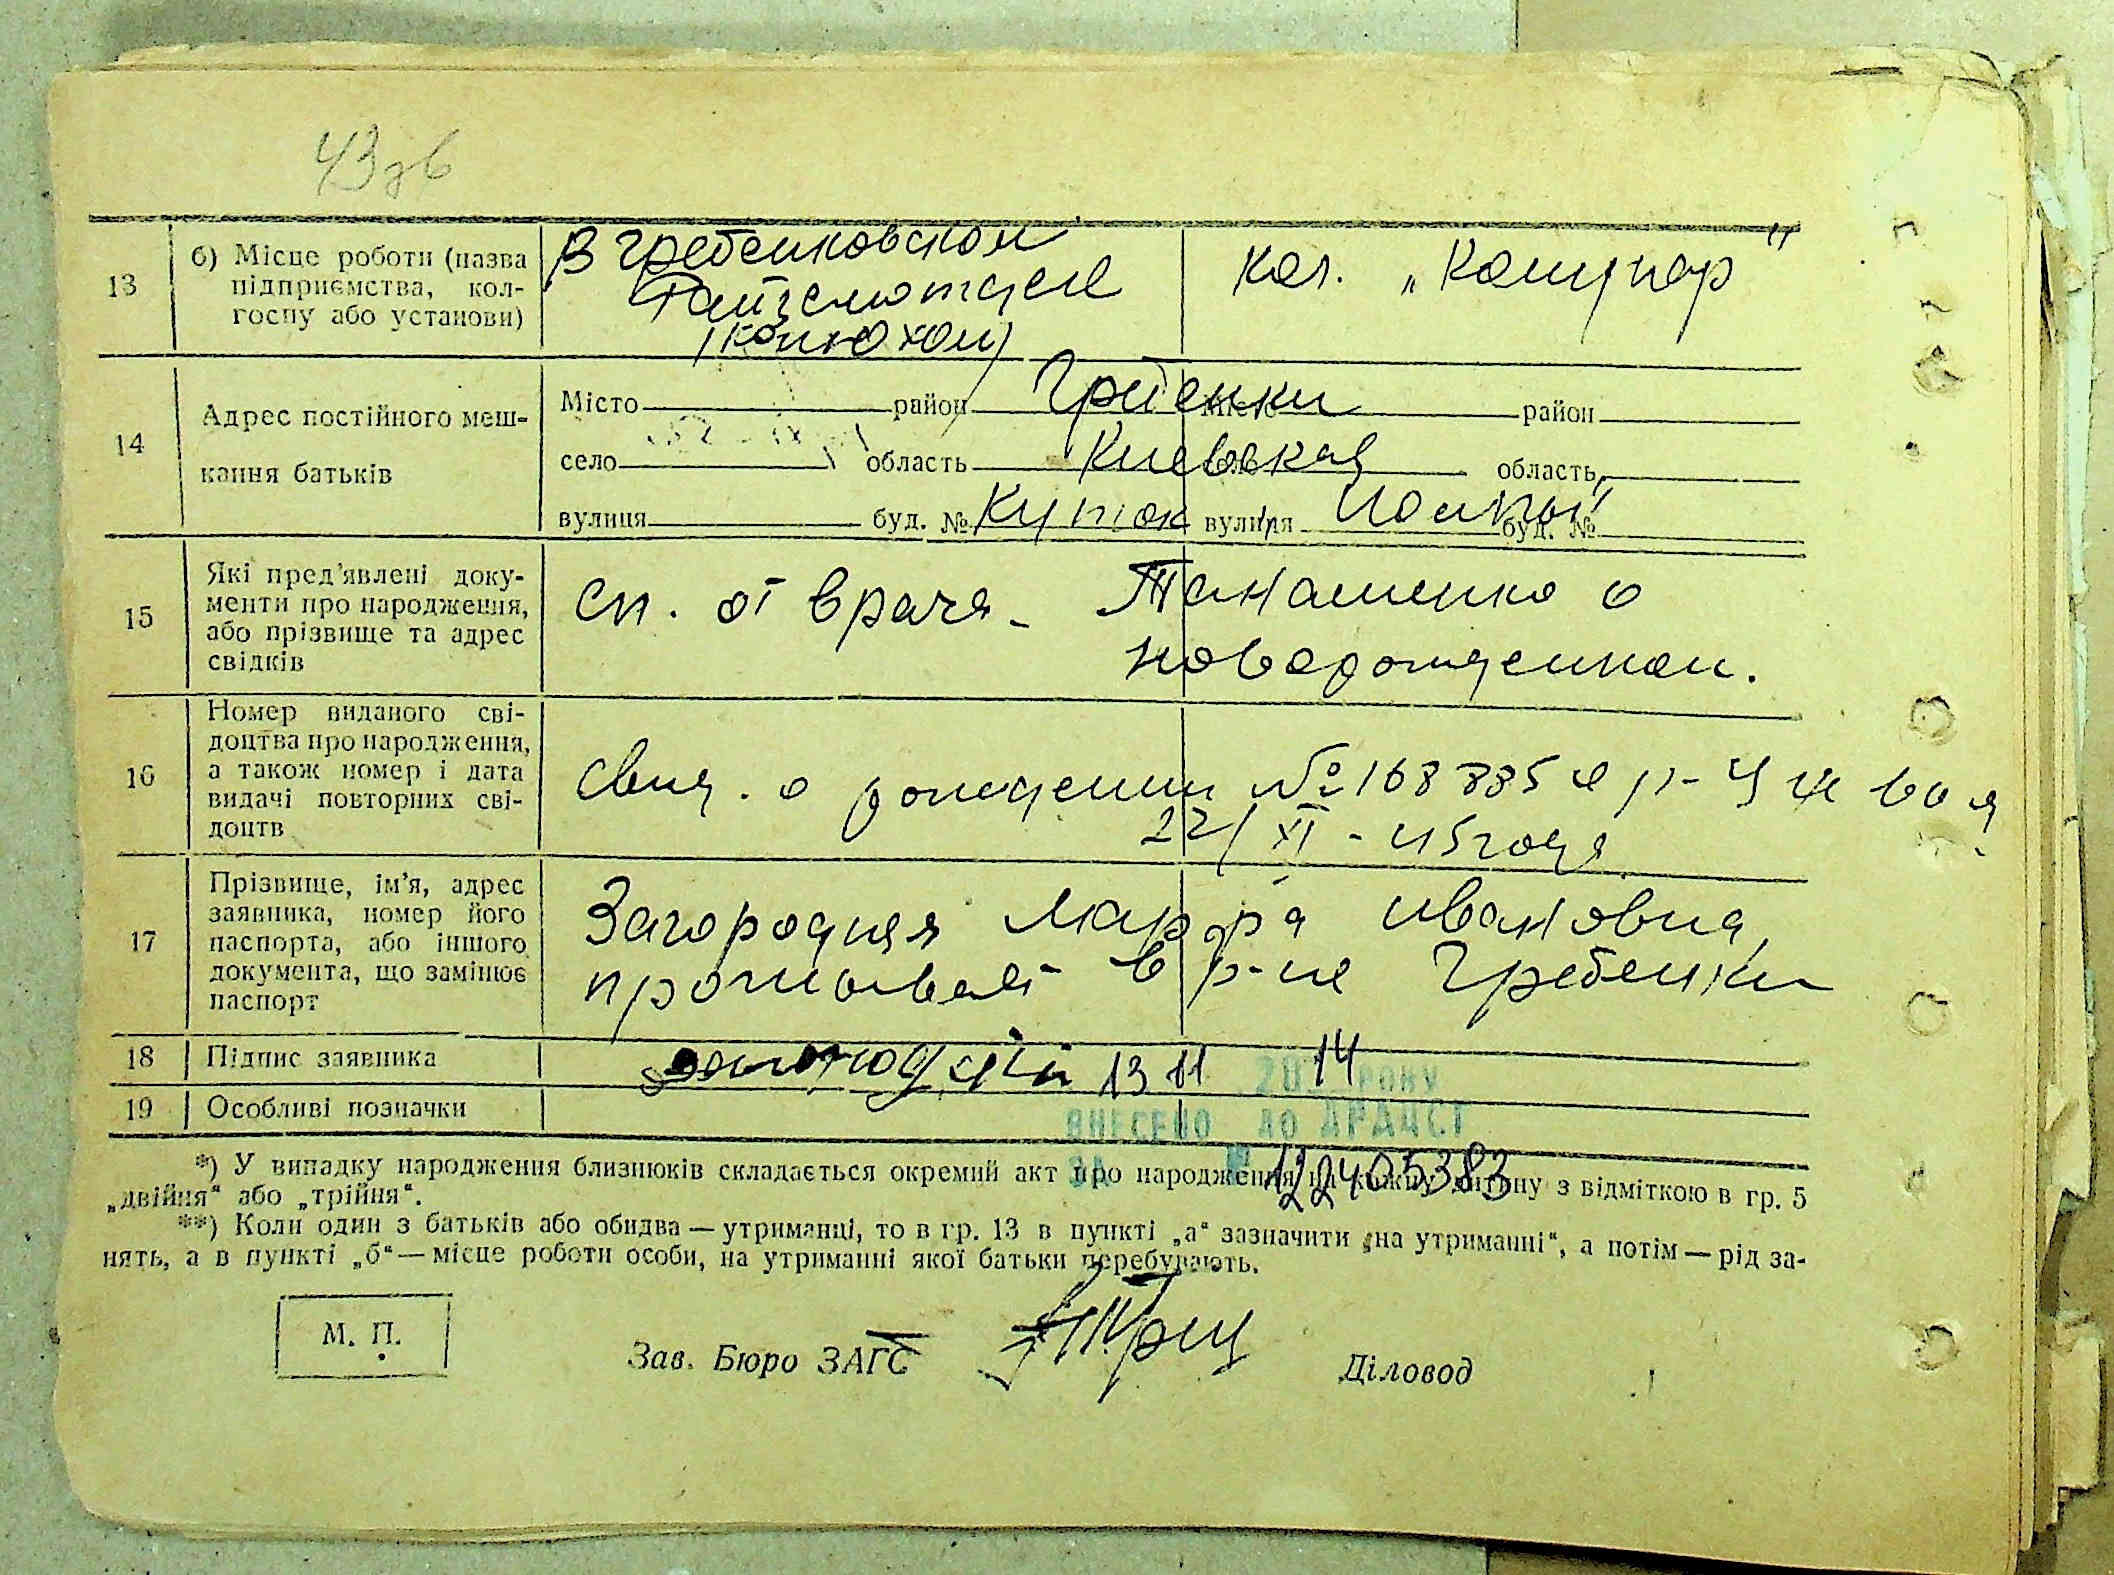 43зв
13
б) Місце роботи (назва
підприємства, кол-
госпу або установи)
В Гребенковском
Райземотделе
(конюхом)
кол. „Комунар"
14
Адрес постійного меш-
кання батьків
Місто район Гребенки район
село область Киевская область
вулиця буд. № Куток вулиця буд. №
15
Які пред'явлені доку-
менти про народження,
або прізвище та адрес
свідків
сп. от врача Танашенко о
новорожденном.
16
Номер виданого сві-
доцтва про народження,
а також номер і дата
видачі повторних сві-
доцтв
свид. о рождении №
22/XI - 45 года
17
Прізвище, ім'я, адрес
заявника, номер його
паспорта, або іншого
документа, що замінює
паспорт
Загородняя Марфа Ивановна,
проживает в р-не Гребенки
18
Підпис заявника
13 11 14
20 РОКУ
19
Особливі позначки
ВНЕСЕНО ДО ДРАЦСГ
ЗА № 12405383
*) У випадку народження близнюків складається окремий акт про народження на кожну дитину з відміткою в гр. 5
„двійня“ або „трійня“.
**) Коли один з батьків або обидва — утриманці, то в гр. 13 в пункті „а“ зазначити „на утриманні“, а потім — рід за-
нять, а в пункті „б“ — місце роботи особи, на утриманні якої батьки перебувають.
М. П.
Зав. Бюро ЗАГС
Діловод